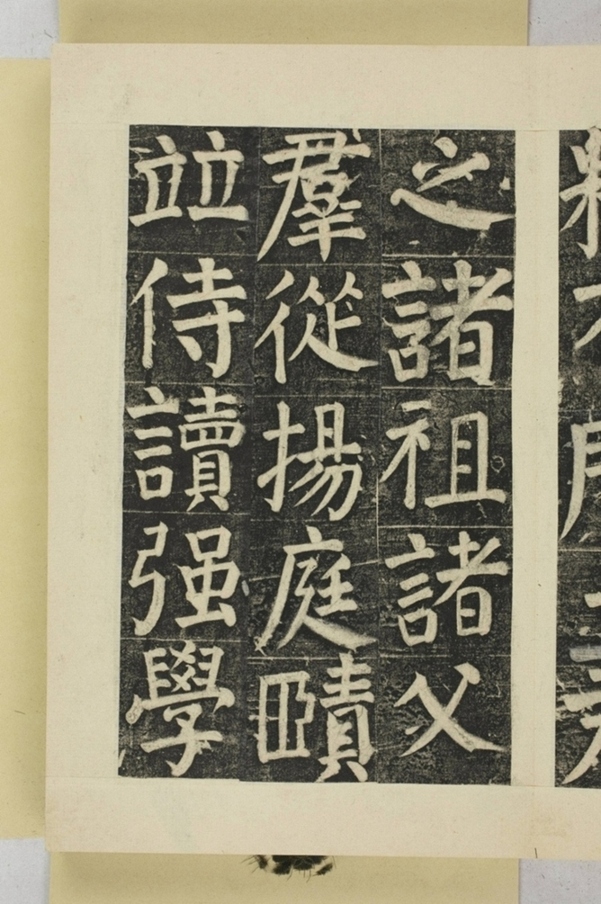 之諸祖諸父
羣從揚庭賾
竝侍讀强學